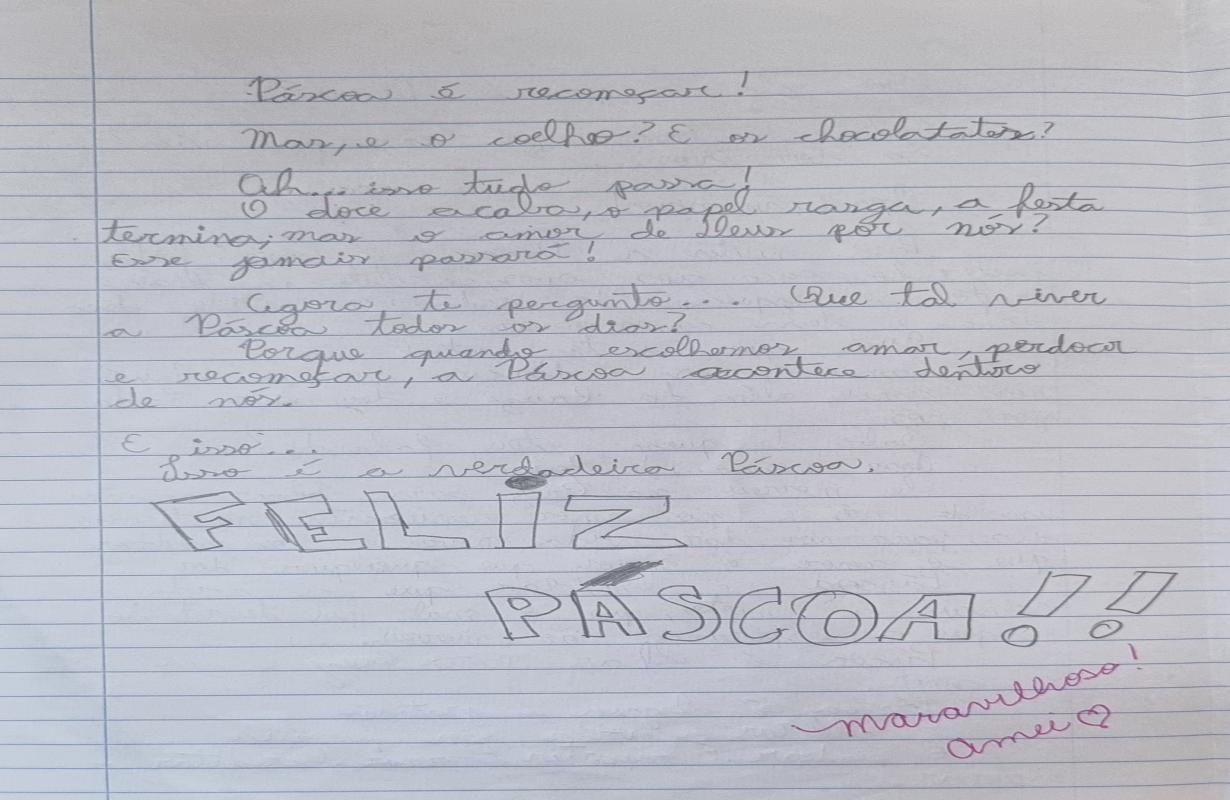 Páscoa é recomeçar!
Mas, e o coelho? E os chocolatates?
Ah... isso tudo passa!
O doce acaba, o papel rasga, a festa
termina, mas o amor de Deus por nós?
Esse jamais passará!
Agora te pergunto... Que tal viver
a Páscoa todos os dias?
Porque quando escolhemos amar, perdoar
e recomeçar, a Páscoa acontece dentro
de nós.
E isso...
Isso é a verdadeira Páscoa.
FELIZ
PÁSCOA!!
maravilhoso!
amei♡